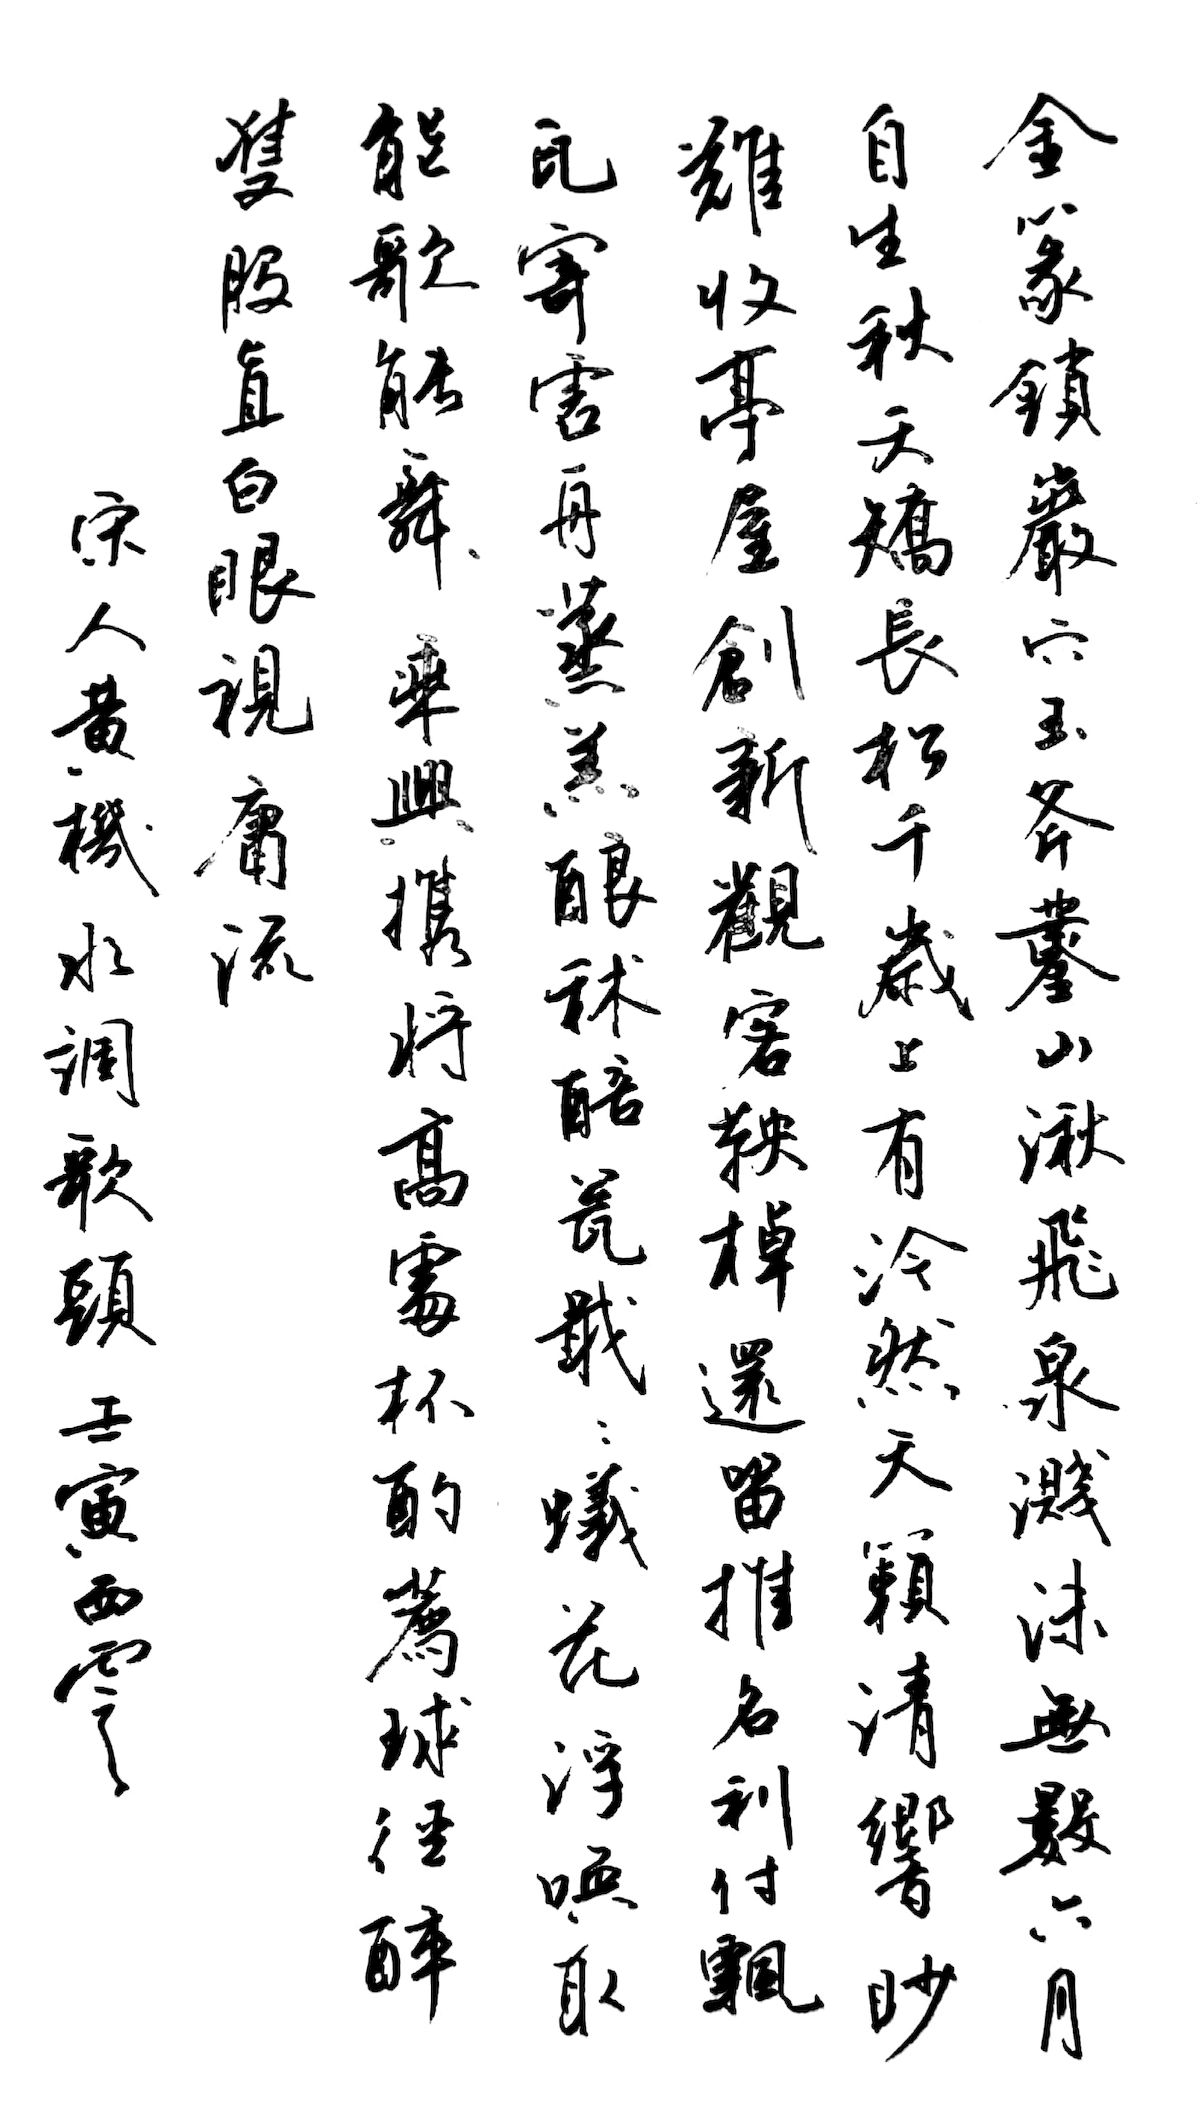 金篆鎖巖穴玉斧鑿山湫飛泉濺沫無數六月
自生秋夭矯長松千歲上有泠然天籟清響眇
難收亭屋創新觀客鞅棹還留推名利付飄
瓦寄虛舟蒸羔釀秫醅瓮戢々蟻花浮喚取
能歌能舞乘興携將高處杯酌薦球徑醉
雙股直白眼視庸流
宋人黃機水調歌頭 壬寅西雲